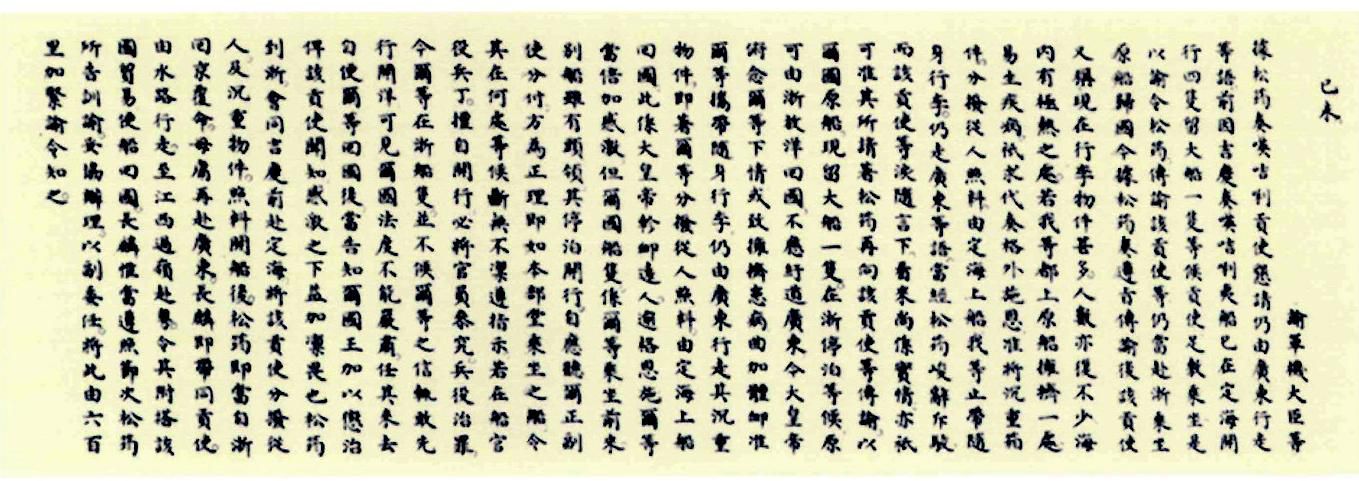 己未
諭軍機大臣等
據松筠奏㗂咭唎貢使懇請仍由廣東行走
等語前因吉慶奏㗂咭唎夷船已在定海開
行四隻留大船一隻等候貢使足敷乘坐是
以諭令松筠傳諭該貢使等仍當赴浙乘坐
原船歸國今據松筠奏遵旨傳諭後該貢使
又稱現在行李物件甚多人數亦復不少海
內有極熱之處若我等都上原船擁擠一處
易生疾病祇求代奏格外施恩准將沉重箱
件分撥從人照料由定海上船我等止帶隨
身行李仍走廣東等語當經松筠峻辭斥駁
而該貢使等淚隨言下看來尚係實情亦祇
可准其所請著松筠再向該貢使等傳諭以
爾國原船現留大船一隻在浙停泊等候原
可由浙放洋回國不應紆道廣東今大皇帝
俯念爾等下情或致擁擠患病曲加體卹准
爾等攜帶隨身行李仍由廣東行走其沉重
物件即著爾等分撥從人照料由定海上船
回國此係大皇帝軫卹遠人逾格恩施爾等
當倍加感激但爾國船隻係爾等乘坐前來
別船雖有頭領其停泊開行自應聽爾正副
使分付方為正理即如本部堂乘坐之船令
其在何處等候斷無不凜遵指示若在船官
役兵丁擅自開行必將官員參究兵役治罪
今爾等在浙船隻並不候爾等之信輒敢先
行開洋可見爾國法度不能嚴肅任其來去
自便爾等回國後當告知爾國王加以懲治
俾該貢使聞知感激之下益加凜畏也松筠
到浙會同吉慶前赴定海將該貢使分撥從
人及沉重物件照料開船後松筠即當自浙
回京覆命毋庸再赴廣東長麟即帶同貢使
由水路行走至江西過嶺赴粵令其附搭該
國貿易便船回國長麟惟當遵照節次松筠
所告訓諭妥協辦理以副委任將此由六百
里加緊諭令知之